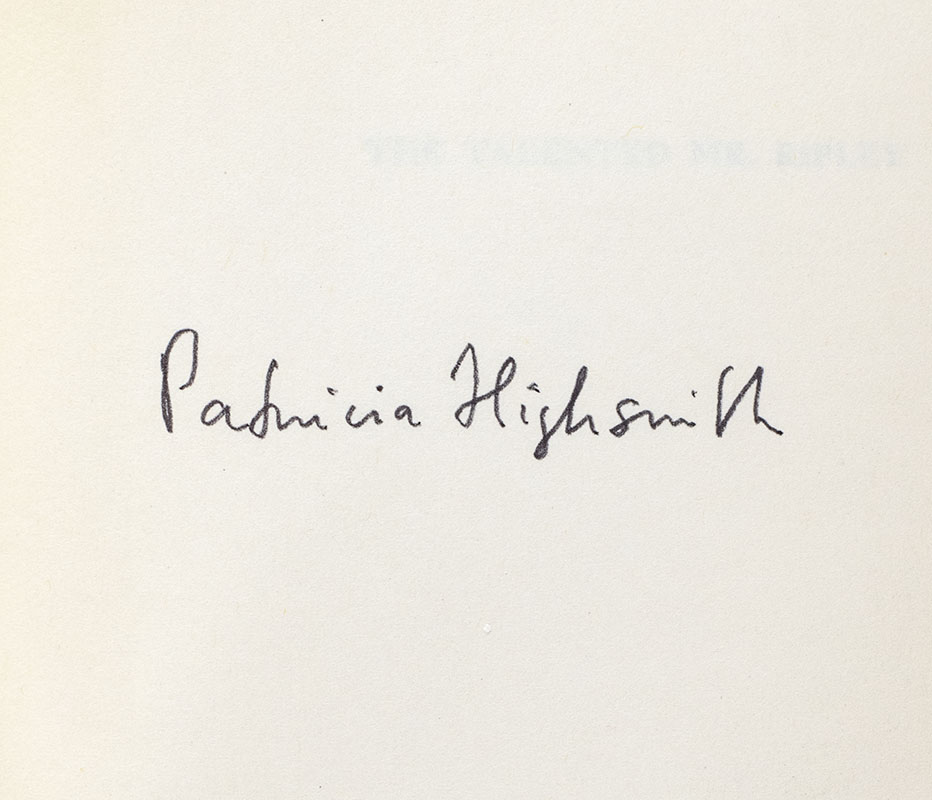 THE TALENTED MR. RIPLEY
Patricia Highsmith